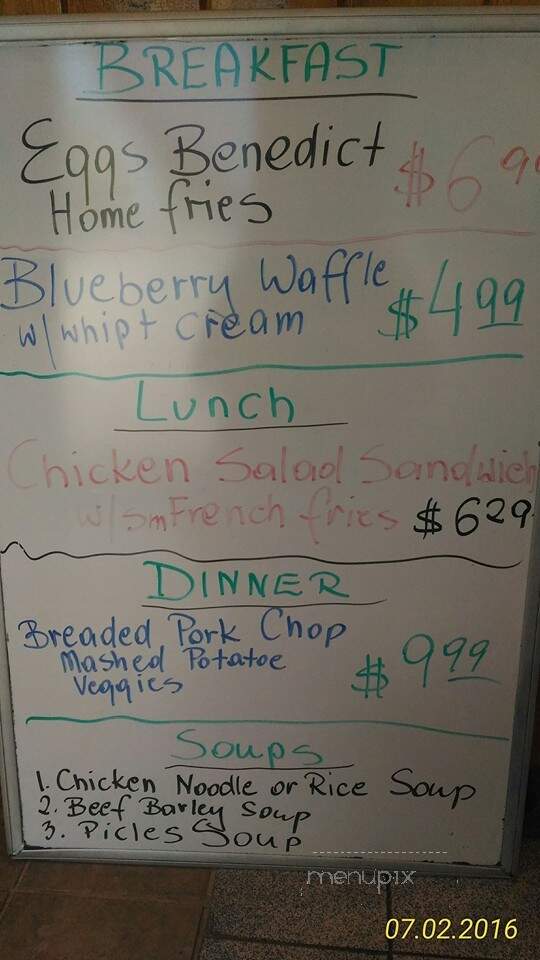 BREAKFAST
Eggs Benedict
Home fries
$6 9
Blueberry Waffle
w/ whipt cream
$4 99
Lunch
Chicken Salad Sandwich
w/ sm French fries $6 29
DINNER
Breaded Pork Chop
Mashed Potatoe
Veggies
$9 99
Soups
1. Chicken Noodle or Rice Soup
2. Beef Barley Soup
3. Picles Soup
menupix
07.02.2016